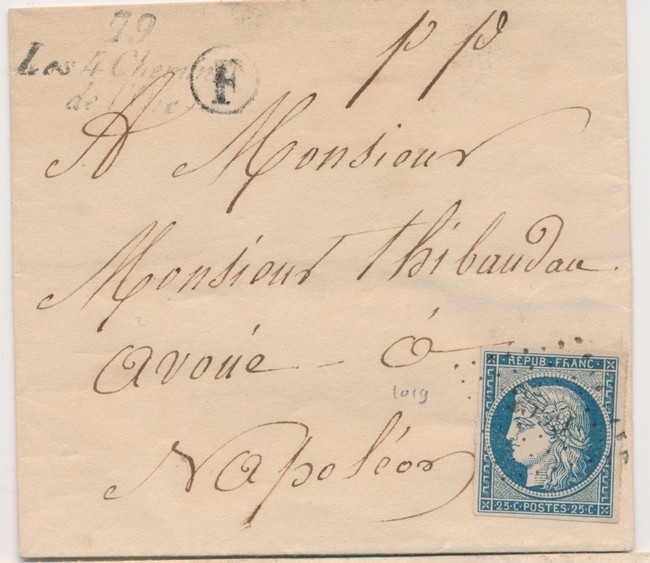 79
Les 4 Chemins
de l'Oie
F
pp
A Monsieur
Monsieur Thibaudau
avoüé - à
Napoléon
1019
REPUB. FRANC.
25·C·POSTES·25·C